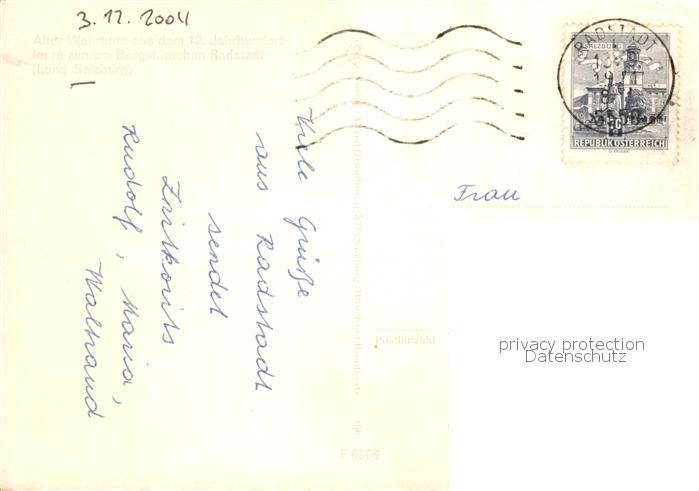 3.12.2004
Alter Wehrturm aus dem 12. Jahrhundert
im reizenden Bergstädtchen Radstadt
(Land Salzburg)
Viele Grüße
aus Radstadt
sendet
Znitkovits
Rudolf, Maria,
Waltraud
RADSTADT
5550
SALZBURG
REPUBLIK ÖSTERREICH
Frau
Postleitzahl
privacy protection
Datenschutz
F 6508